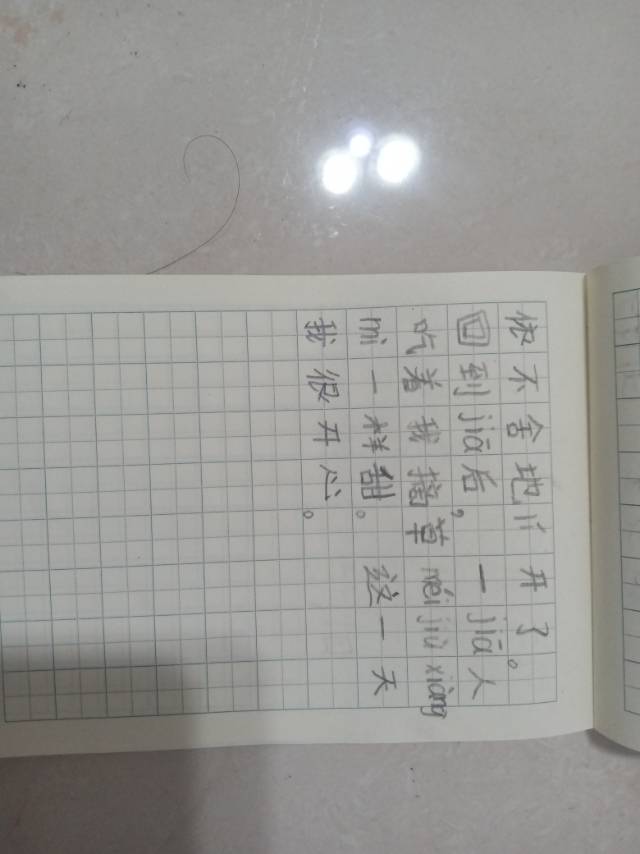 依不舍地lí开了。
回到jiā后，一jiā人
吃着我摘草méi jiù xiàng
mì一样甜。这一天
我很开心。